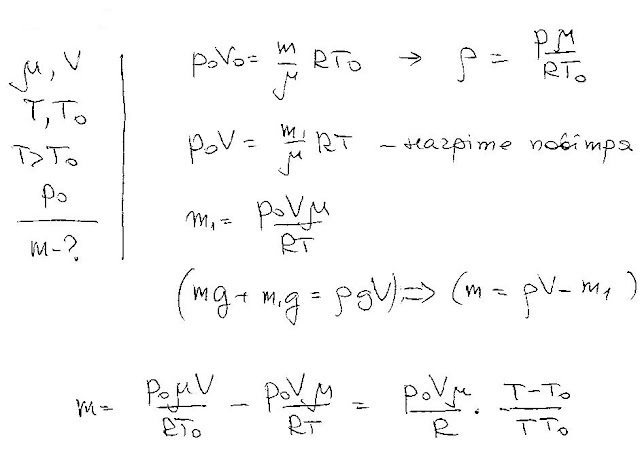 μ, V
T, T₀
T>T₀
p₀
m-?
p₀V₀ = m/μ RT₀ → ρ = pμ/RT₀
p₀V = m₁/μ RT – нагріте повітря
m₁ = p₀Vμ/RT
(mg + m₁g = ρgV) ⇒ (m = ρV – m₁)
m = p₀μV/RT₀ – p₀Vμ/RT = p₀Vμ/R · T–T₀/TT₀